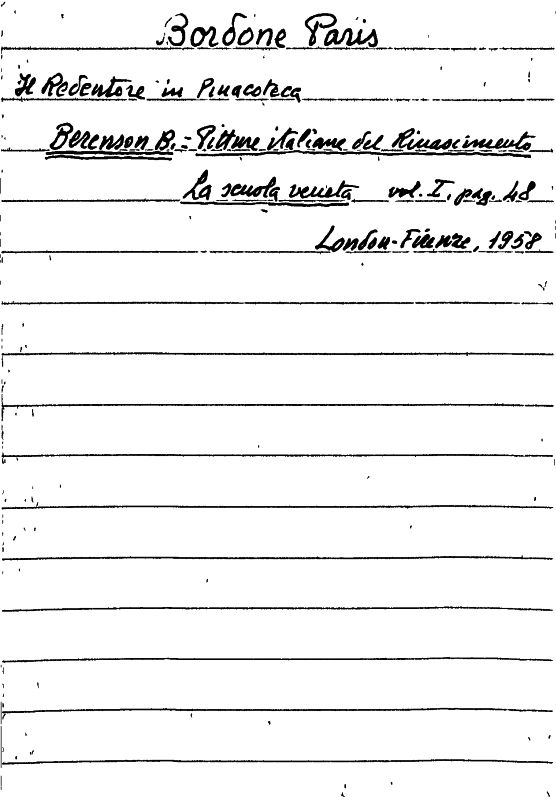 Bordone Paris
Il Redentore in Pinacoteca
Berenson B. = Pitture italiane del Rinascimento
La scuola veneta vol. I, pag. 48
London-Firenze, 1958